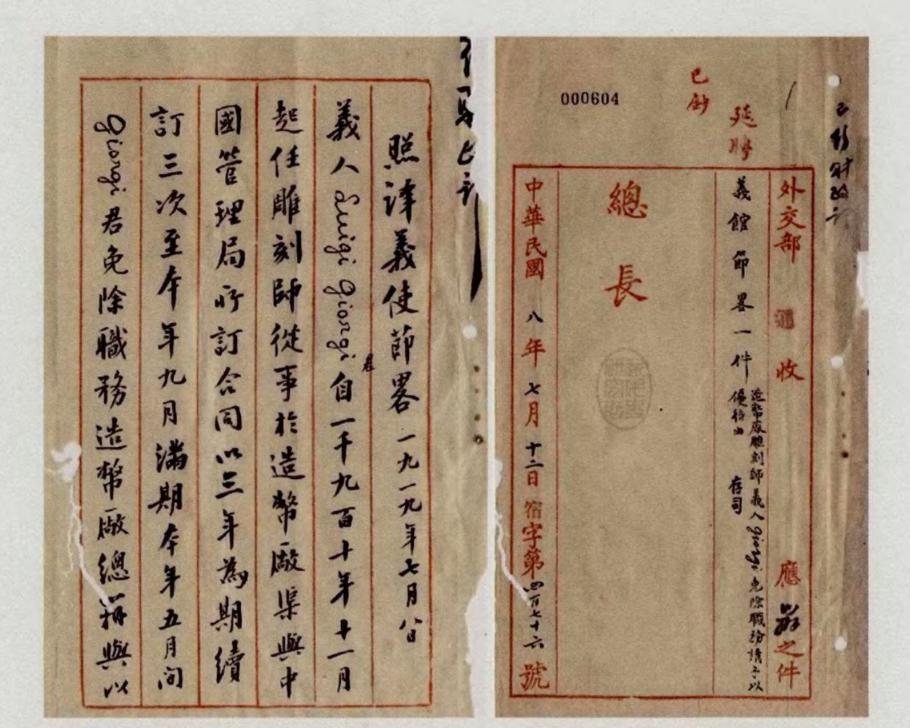 000604
已鈔
延聘
外交部 收 應辦之件
義館節畧一件 造幣廠雕刻師義人Giorgi免除職務請予以優待由 存司
總長
中華民國八年七月十二日宿字第四百七十六號
照譯義使節畧 一九一九年七月八日
義人Luigi Giorgi君自一千九百十年十一月
起任雕刻師從事於造幣廠渠與中
國管理局所訂合同以三年為期續
訂三次至本年九月滿期本年五月間
Giorgi君免除職務造幣廠總辦與以